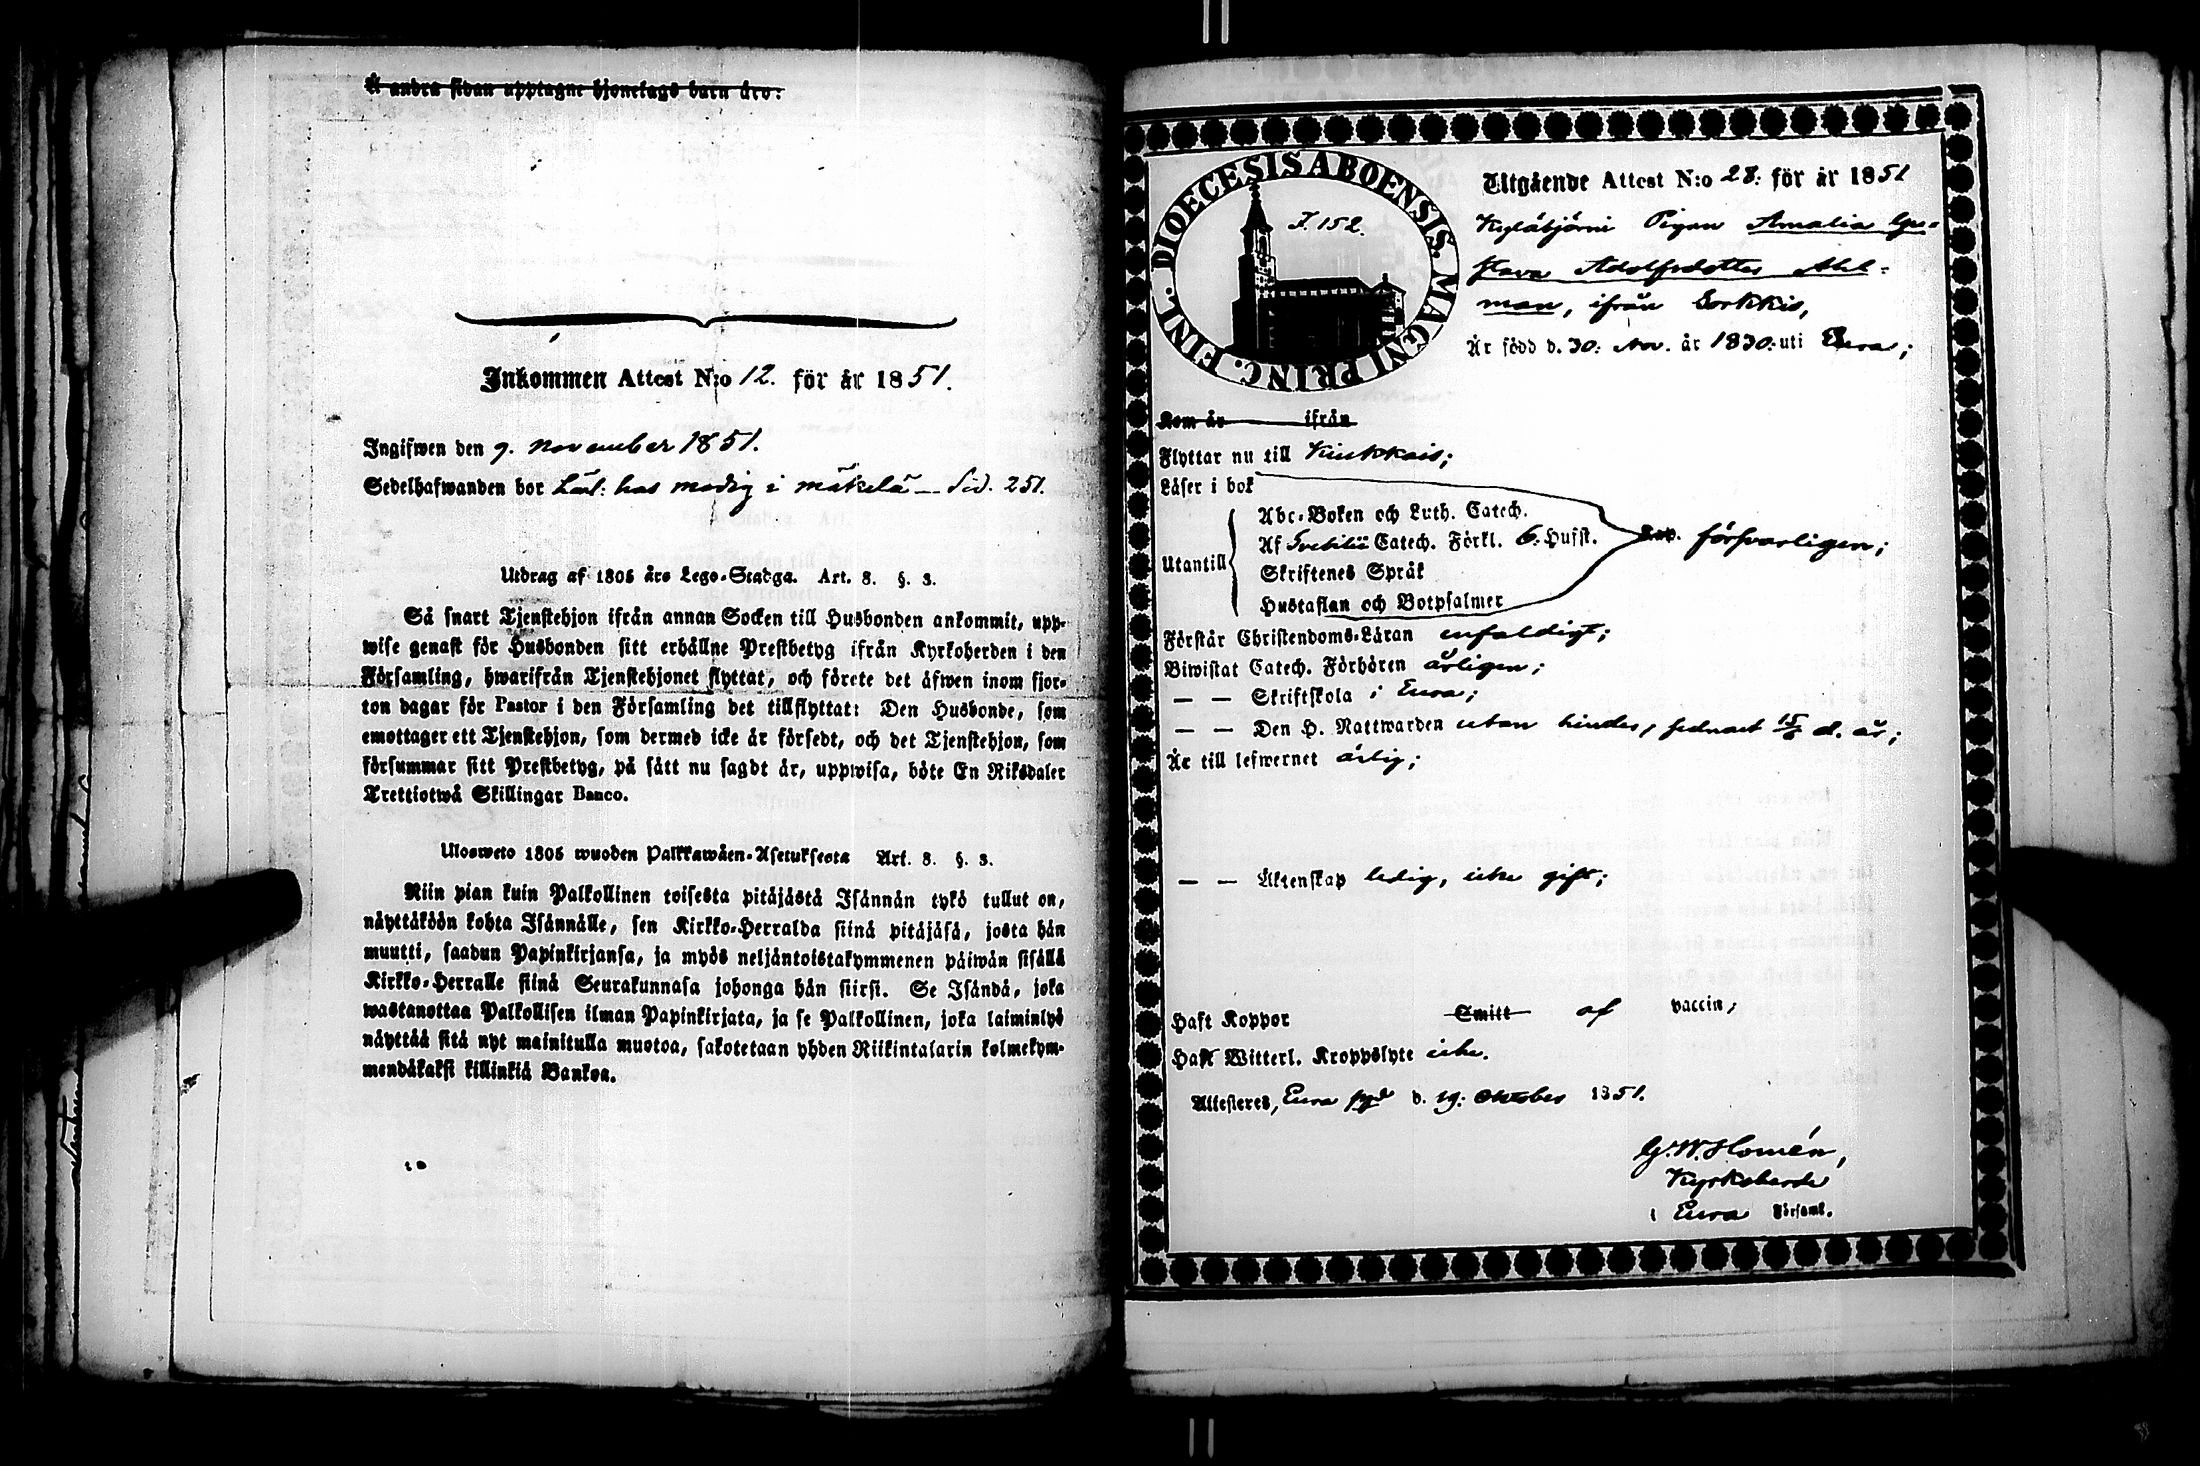 Å andra sidan upptagne hjonelags barn äro:
Inkommen Attest N:o 12. för år 1851.
Ingifwen den 9. November 1851.
Sedelhafwanden bor hos modig i mäkelä — Sid. 251.
Utdrag af 1805 års Lego-Stadga. Art. 8. §. 3.
Så snart Tjenstehjon ifrån annan Socken till Husbonden ankommit, upp-
wise genast för Husbonden sitt erhållne Prestbetyg ifrån Kyrkoherden i den
Församling, hwarifrån Tjenstehjonet flyttat, och förete det äfwen inom fjor-
ton dagar för Pastor i den Församling det tillflyttat: Den Husbonde, som
emottager ett Tjenstehjon, som dermed icke är försedt, och det Tjenstehjon, som
försummar sitt Prestbetyg, på sätt nu sagdt är, uppwisa, böte En Riksdaler
Trettiotwå Skillingar Banco.
Ulosweto 1805 wuoden Palkkawäen-Asetuksesta Art. 8. §. 3.
Niin pian kuin Palkollinen toisesta pitäjästä Isännän tykö tullut on,
näyttäköön kohta Isännälle, sen Kirkko-Herralda siinä pitäjäsä, josta hän
muutti, saadun Papinkirjansa, ja myös neljäntoistakymmenen päiwän sisällä
Kirkko-Herralle siinä Seurakunnasa johonga hän siirsi. Se Isändä, joka
wastanottaa Palkollisen ilman Papinkirjata, ja se Palkollinen, joka laiminlyö
näyttää sitä nyt mainitulla muotoa, sakotetaan yhden Riikintalarin kolmekym-
mendäkaksi killinkiä Bankoa.
DIOECESIS ABOENSIS. MAGNI PRINC. FINL.
F. 152.
Utgående Attest N:o 28: för år 1851
Kyläbjörni Pigan Amalia Gu-
stava Adolfsdotter Ahl-
man, ifrån Sorkkis,
Är född d. 30: Nov. år 1830: uti Eura;
Kom år ifrån
Flyttar nu till Kiukkais;
Läser i bok
Abc-Boken och Luth. Catech.
Utantill Af Svebilii Catech. Förkl. 6. Hufst. försvarligen;
Skriftenes Språk
Hustaflan och Botpsalmer
Förstår Christendoms-Läran enfaldigt;
Biwistat Catech. Förhören årligen;
— — Skriftskola i Eura;
— — Den H. Nattwarden utan hinder, sednast 15/6 d. år;
Är till lefwernet ärlig;
— — Äktenskap ledig, icke gift;
Haft Koppor Smitt af vaccin;
Haft Witterl. Kroppslyte icke.
Attesteres, Eura pgd d. 19: Oktober 1851.
G. W. Homén,
Kyrkoherde
i Eura Församl.